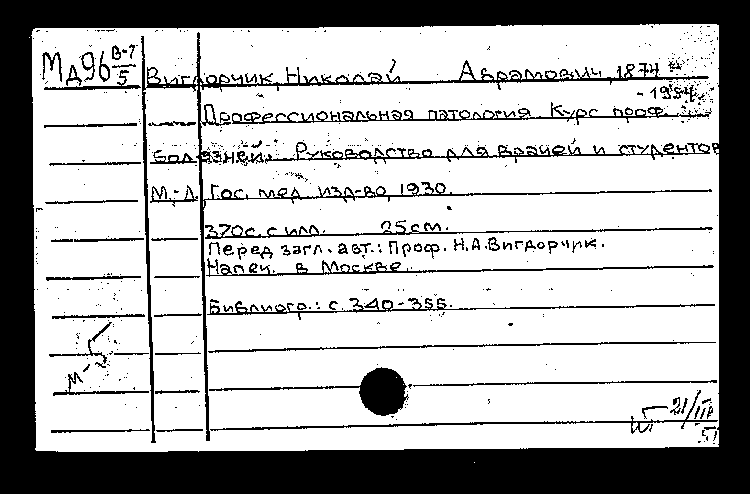 Мд96 В-7/5
Вигдорчик, Николай Абрамович, 1874-
-1954.
Профессиональная патология. Курс проф.
болезней. Руководство для врачей и студентов
М.-Л. Гос. мед. изд-во, 1930.
370с. с илл. 25см.
Перед загл. авт.: Проф. Н.А.Вигдорчик.
Напеч. в Москве.
Библиогр.: с. 340-355.
М-5
21/III
51